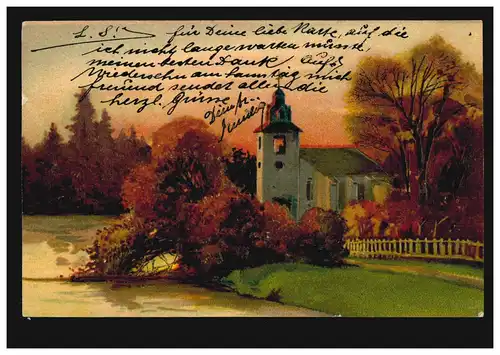 L. S. für Deine liebe Karte, auf die
ich nicht lange warten musste,
meinen besten Dank. Auf
Wiedersehn am Samstag mich
freuend sendet alles die
herzl. Grüsse
Dein Fr.